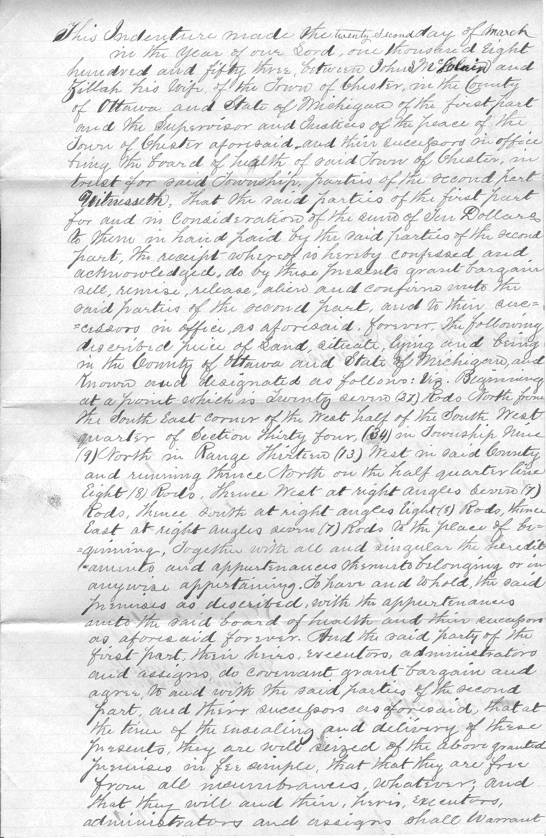 This Indenture made the twenty second day of March
in the Year of our Lord, one thousand Eight
hundred and fifty three, between John McClain and
Zillah his Wife, of the Town of Chester, in the County
of Ottawa and State of Michigan of the first part
and the Supervisor and Justices of the peace of the
Town of Chester aforesaid, and their successors in office
being the board of health of said Town of Chester, in
trust for said Township, parties of the second part
Witnesseth, that the said parties of the first part
for and in Consideration of the sum of Ten Dollars
to them in hand paid by the said parties of the second
part, the receipt whereof is hereby confessed and
acknowledged, do by these presents grant bargain
sell, remise, release, alien and confirm unto the
said parties of the second part, and to their suc=
=cessors in office, as aforesaid, forever, the following
described piece of Land, situate, lying and being
in the County of Ottawa and State of Michigan, and
Known and designated as follows: Viz. Beginning
at a point which is Twenty seven (27) Rods North from
the South East corner of the West half of the South West
quarter of Section Thirty four, (34) in Township Nine
(9) North in Range Thirteen (13) West in said County
and running thence North on the half quarter line
Eight (8) Rods, thence West at right angles Seven (7)
Rods, thence South at right angles Eight (8) Rods, thence
East at right angles seven (7) Rods to the place of be=
=ginning, Together with all and singular the heredit
=aments and appurtenances thereunto belonging or in
anywise appertaining. To have and to hold, the said
premises as described, with the appurtenances
unto the said board of health and their successors
as aforesaid forever. And the said party of the
first part, their heirs, executors, administrators
and assigns, do covenant, grant bargain and
agree, to and with the said parties of the second
part, and their successors as aforesaid, that at
the time of the ensealing and delivery of these
presents, they are well seized of the above granted
premises in fee simple, that that they are free
from all incumbrances, whatever; and
that they will and their, heirs, executors,
administrators and assigns shall Warrant